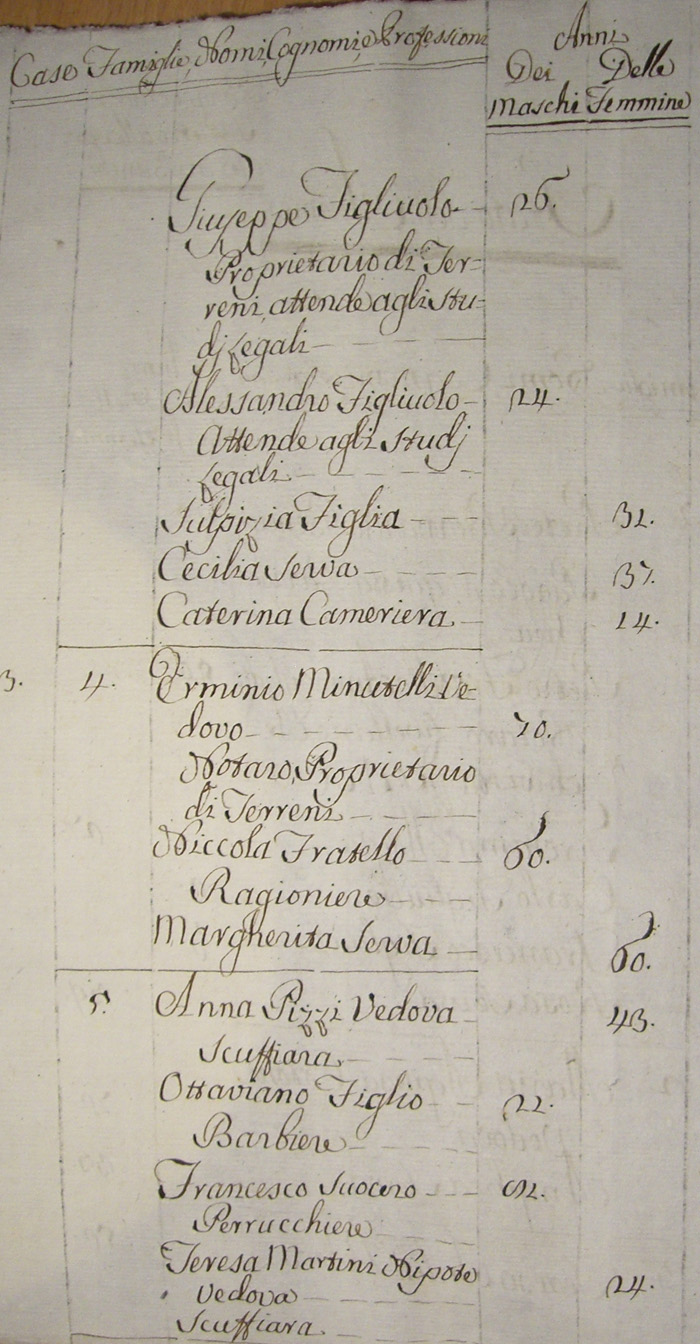 Case Famiglie, Nomi, Cognomi, e Professioni
Anni
Dei Delle
Maschi Femmine
Giuseppe Figliuolo 26.
Proprietario di Ter-
reni, attende agli Stu-
dj Legali
Alessandro Figliuolo 24.
Attende agli Studj
Legali
Sulpizia Figlia 31.
Cecilia Serva 37.
Caterina Cameriera 14.
3. 4. Erminio Minutelli Ve-
dovo 70.
Notaro, Proprietario
di Terreni
Niccola Fratello 60.
Ragioniere
Margherita Serva 60.
5. Anna Pizzi Vedova 43.
Scuffiara
Ottaviano Figlio 22.
Barbiere
Francesco Suocero
Perrucchiere
Teresa Martini Nipote
Vedova 24.
Scuffiara